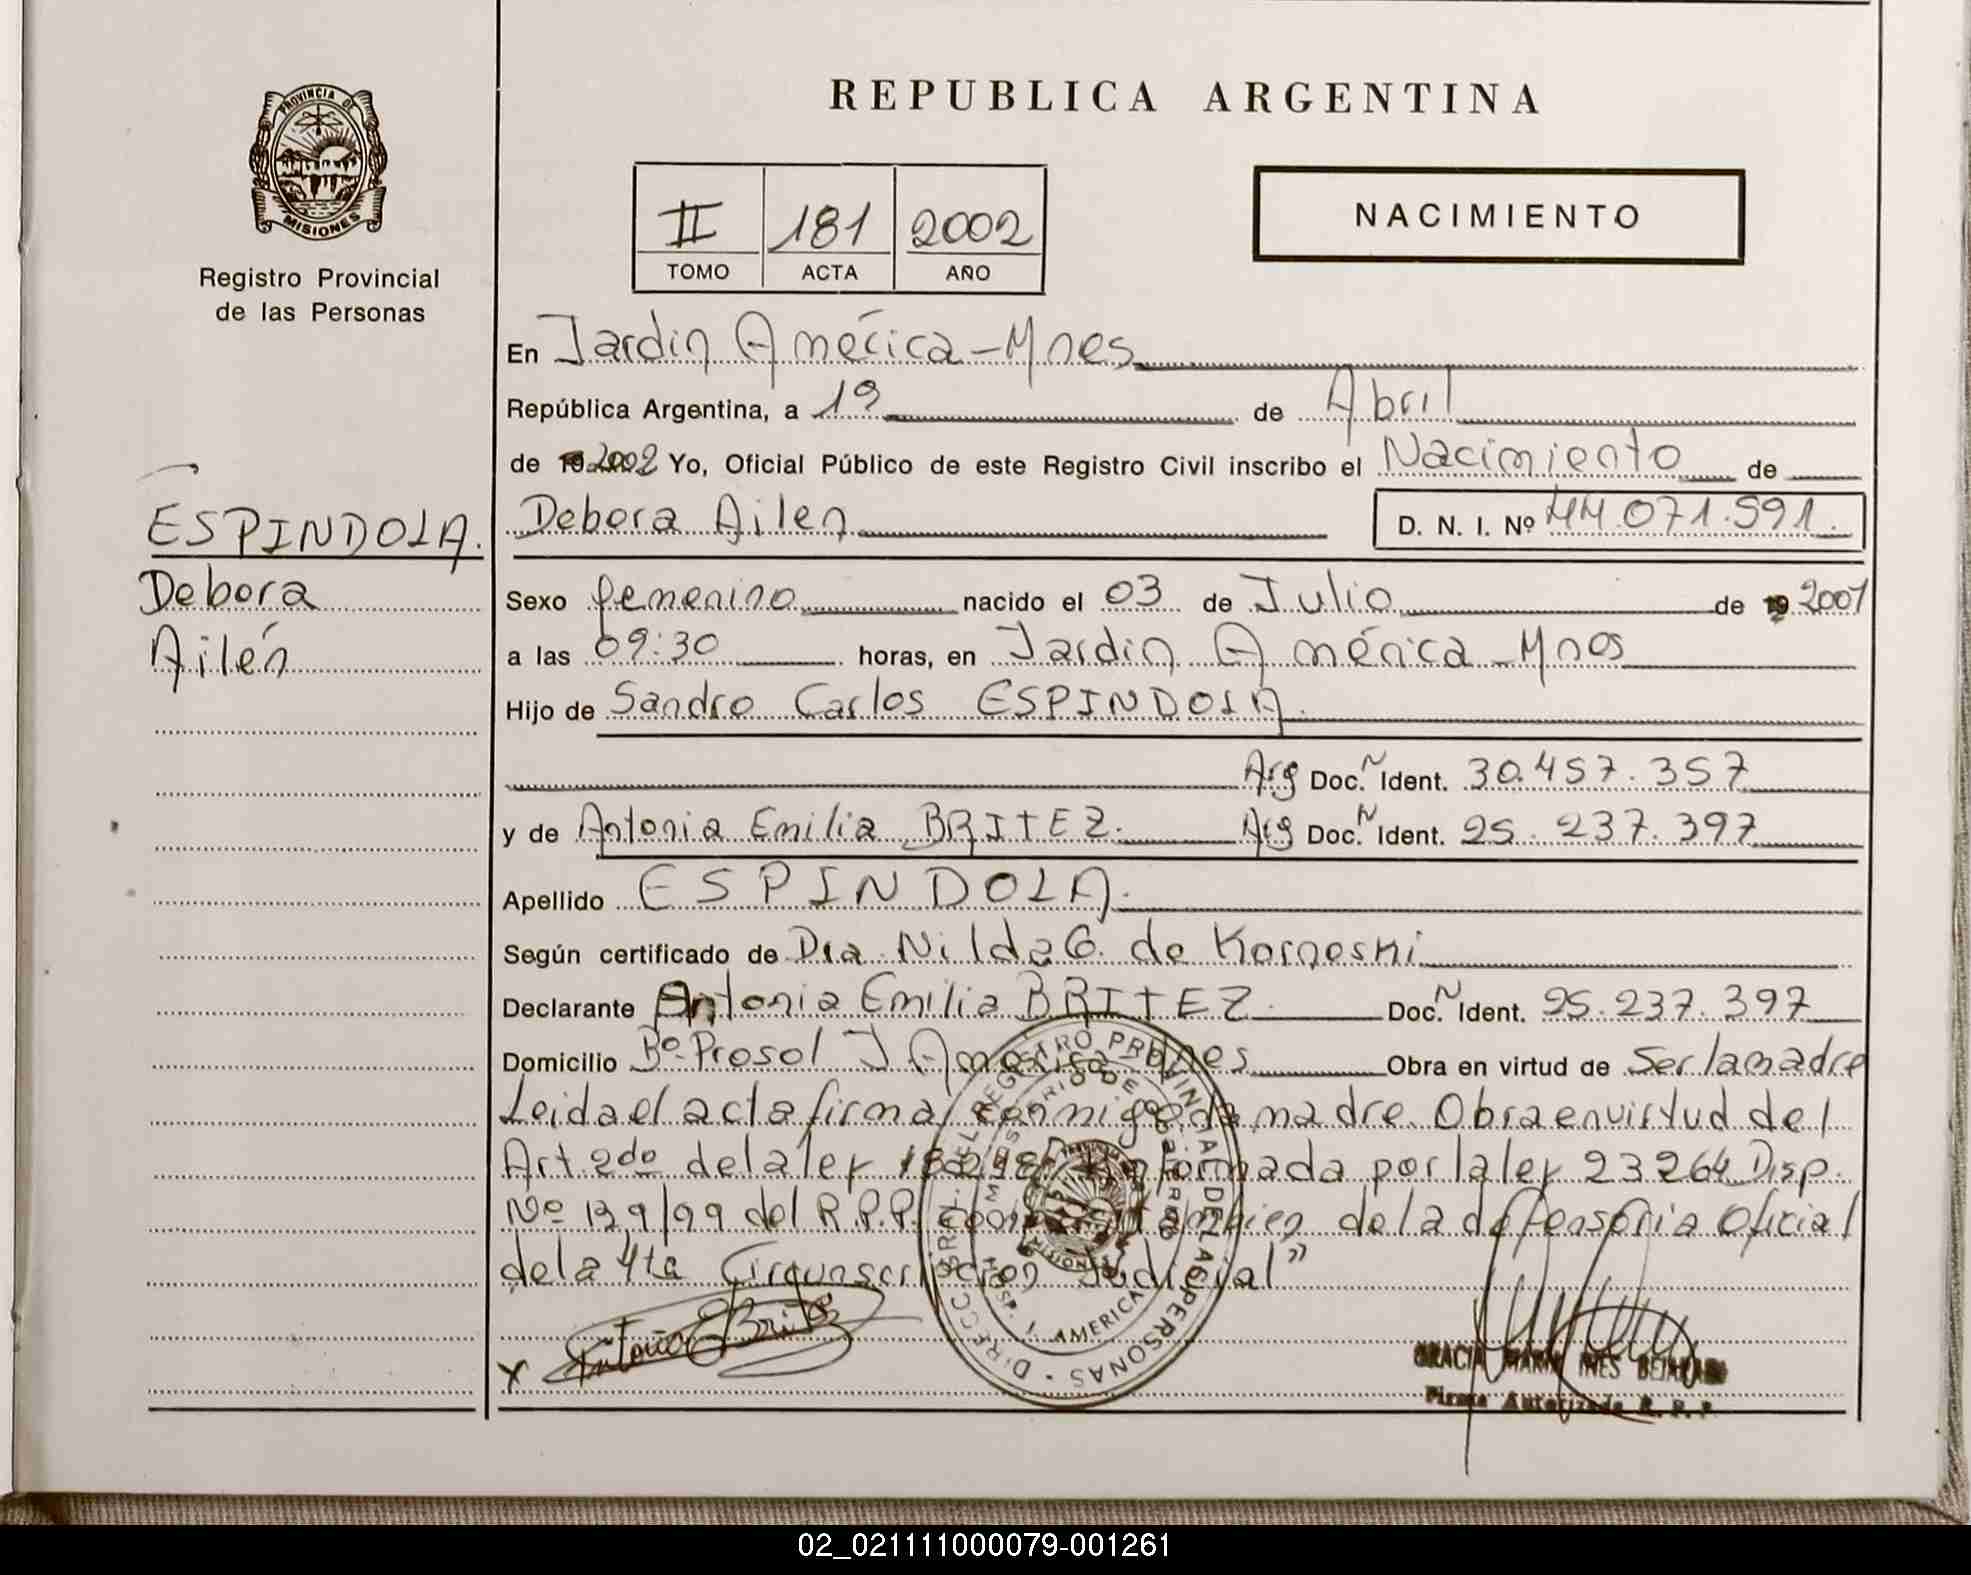 PROVINCIA DE
MISIONES
Registro Provincial
de las Personas
REPUBLICA ARGENTINA
II 181 2002
TOMO ACTA AÑO
NACIMIENTO
En Jardin América - Mnes
República Argentina, a 19 de Abril
de 19 2002 Yo, Oficial Público de este Registro Civil inscribo el Nacimiento de
Debora Ailen D. N. I. Nº 44.071.591.
ESPINDOLA.
Debora
Ailén
Sexo femenino nacido el 03 de Julio de 19 2001
a las 09:30 horas, en Jardin América - Mnes
Hijo de Sandro Carlos ESPINDOLA.
Arg Doc. N Ident. 30.457.357
y de Antonia Emilia BRITEZ. Arg Doc. N Ident. 25.237.397
Apellido ESPINDOLA.
Según certificado de Dra. Nilda G. de Korneski
Declarante Antonia Emilia BRITEZ. Doc. N Ident. 25.237.397
Domicilio Bº Prosol J. América - Mnes Obra en virtud de Ser la madre
Leida el acta firma conmigo la madre. Obra en virtud del
Art. 2do de la ley por la ley 23264 Disp.
Nº 139/99 del R.P.P. también de la deffensoria Oficial
de la 4ta Circunscripcion Judicial"
X Antonia E Britez
DIRECC. GRAL. DEL REGISTRO PROVINCIAL DE LAS PERSONAS
AMERICA
GRACIA MARIA INES
Firma Autorizada R. P. P.
02_021111000079-001261